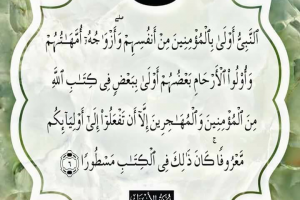 ٱلنَّبِىُّ أَوْلَىٰ بِٱلْمُؤْمِنِينَ مِنْ أَنفُسِهِمْ ۖ وَأَزْوَٰجُهُۥٓ أُمَّهَٰتُهُمْ ۗ
وَأُو۟لُوا۟ ٱلْأَرْحَامِ بَعْضُهُمْ أَوْلَىٰ بِبَعْضٍ فِى كِتَٰبِ ٱللَّهِ
مِنَ ٱلْمُؤْمِنِينَ وَٱلْمُهَٰجِرِينَ إِلَّآ أَن تَفْعَلُوٓا۟ إِلَىٰٓ أَوْلِيَآئِكُم
مَّعْرُوفًا ۚ كَانَ ذَٰلِكَ فِى ٱلْكِتَٰبِ مَسْطُورًا ٦